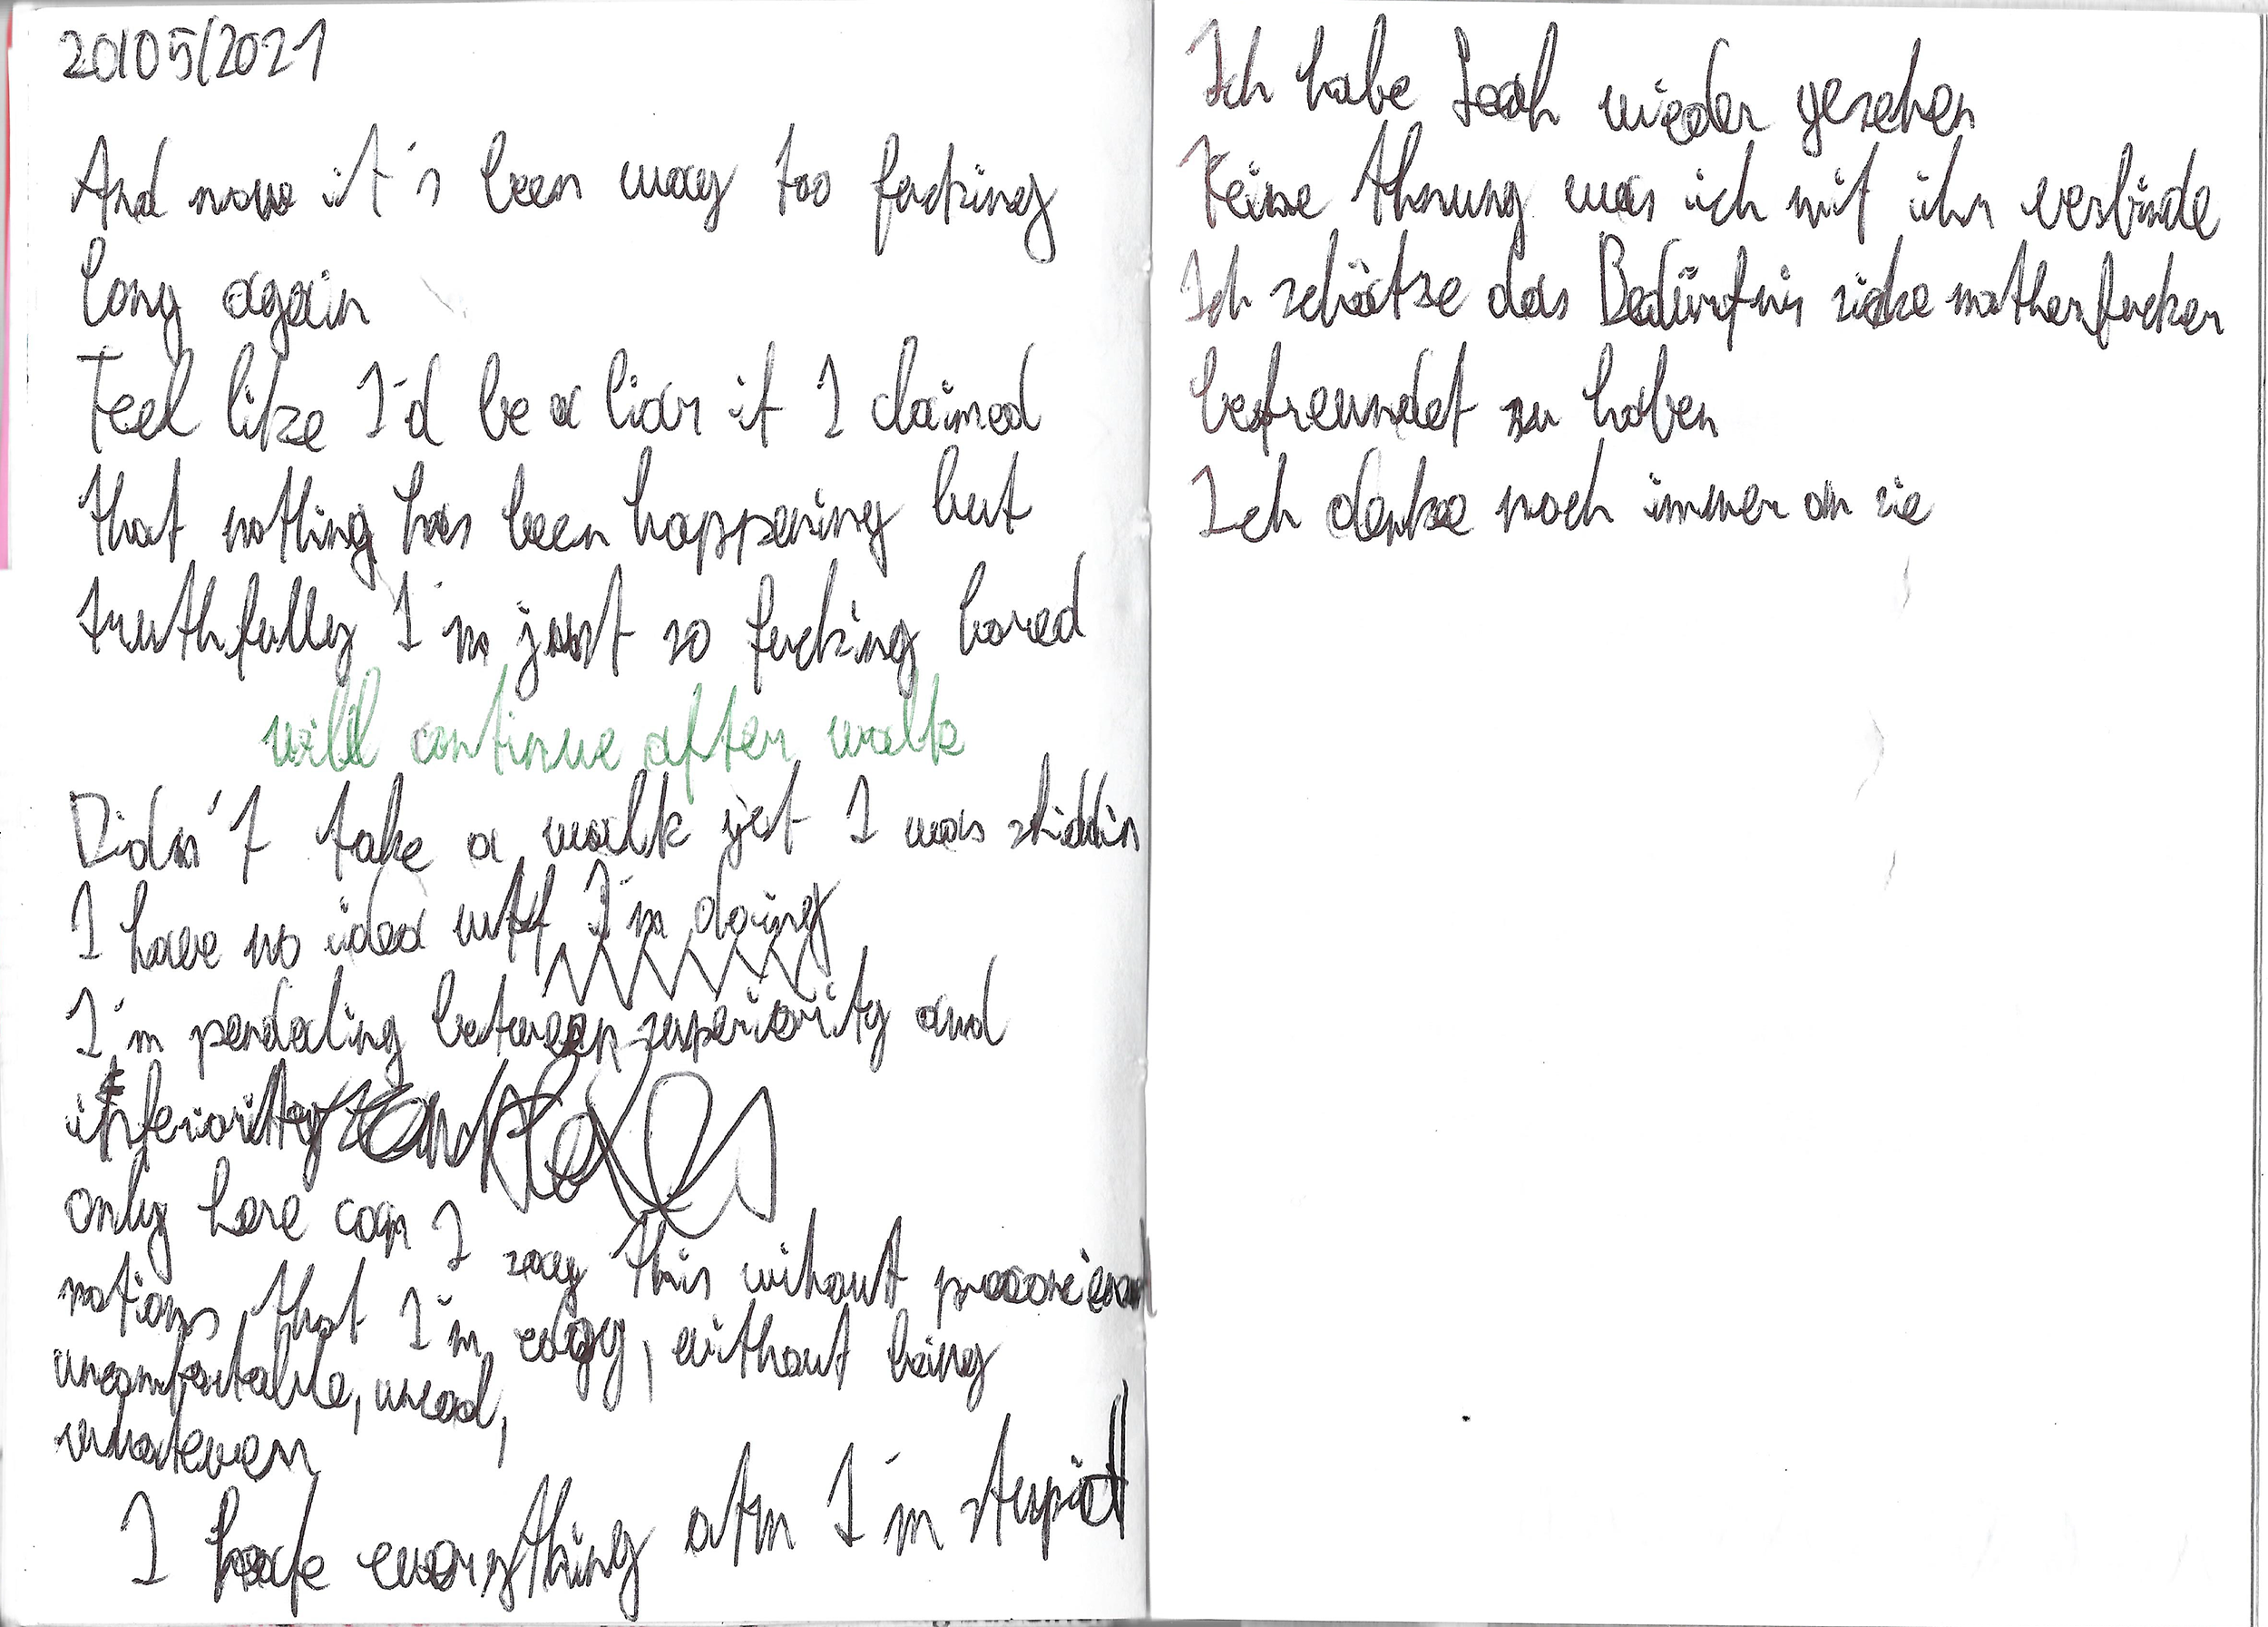 20/05/2021
And now it's been way too fucking
long again
Feel like I'd be a liar if I claimed
that nothing has been happening but
truthfully I'm just so fucking bored
will continue after walk
Didn't take a walk yet I was shiddin
I have no idea wtf I'm doing
I'm pendeling between superiority and
inferiority complexes
only here can I say this without preconceived
notions that I'm edgy, without being
uncomfortable, uncool,
whatever
I hate everything atm I'm stupid
Ich habe Leah wieder gesehen
Keine Ahnung was ich mit ihr verbinde
Ich schätze das Bedürfnis sicke motherfucker
befreundet zu haben
Ich denke noch immer an sie